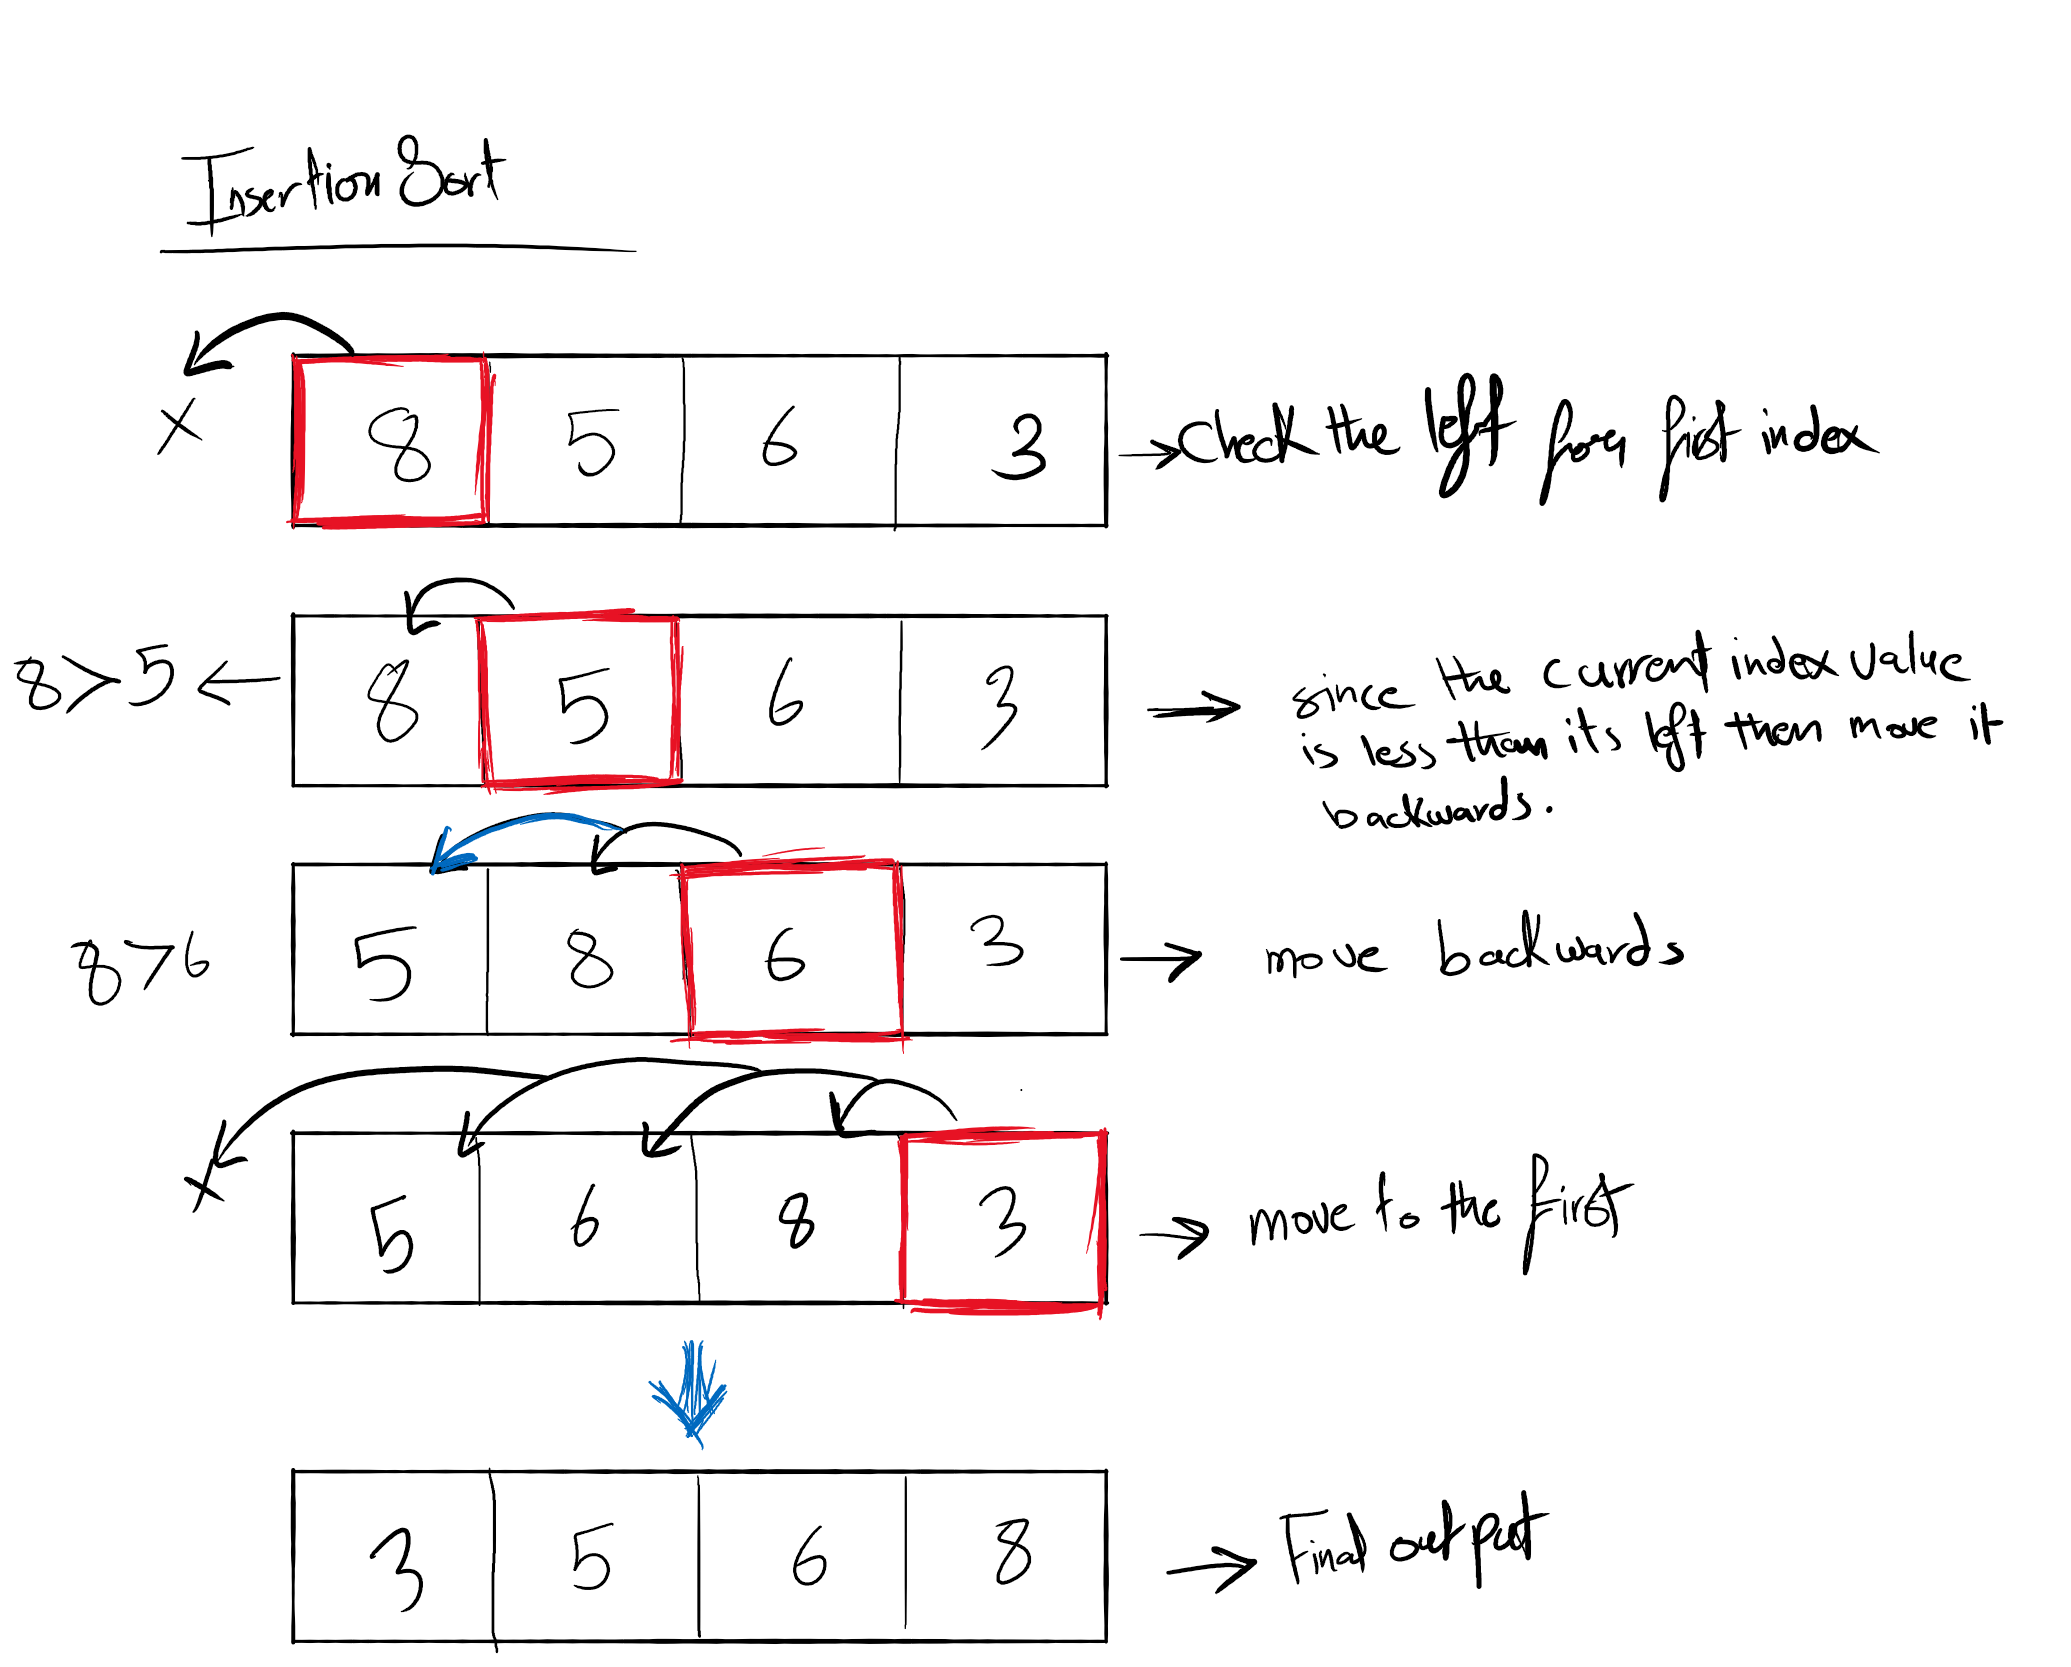 Insertion Sort
x
8 5 6 3 → Check the left from first index
8 > 5 ← 8 5 6 3 → since the current index value
is less than its left then move it
backwards.
8 > 6 5 8 6 3 → move backwards
x
5 6 8 3 → move to the first
3 5 6 8 → Final output